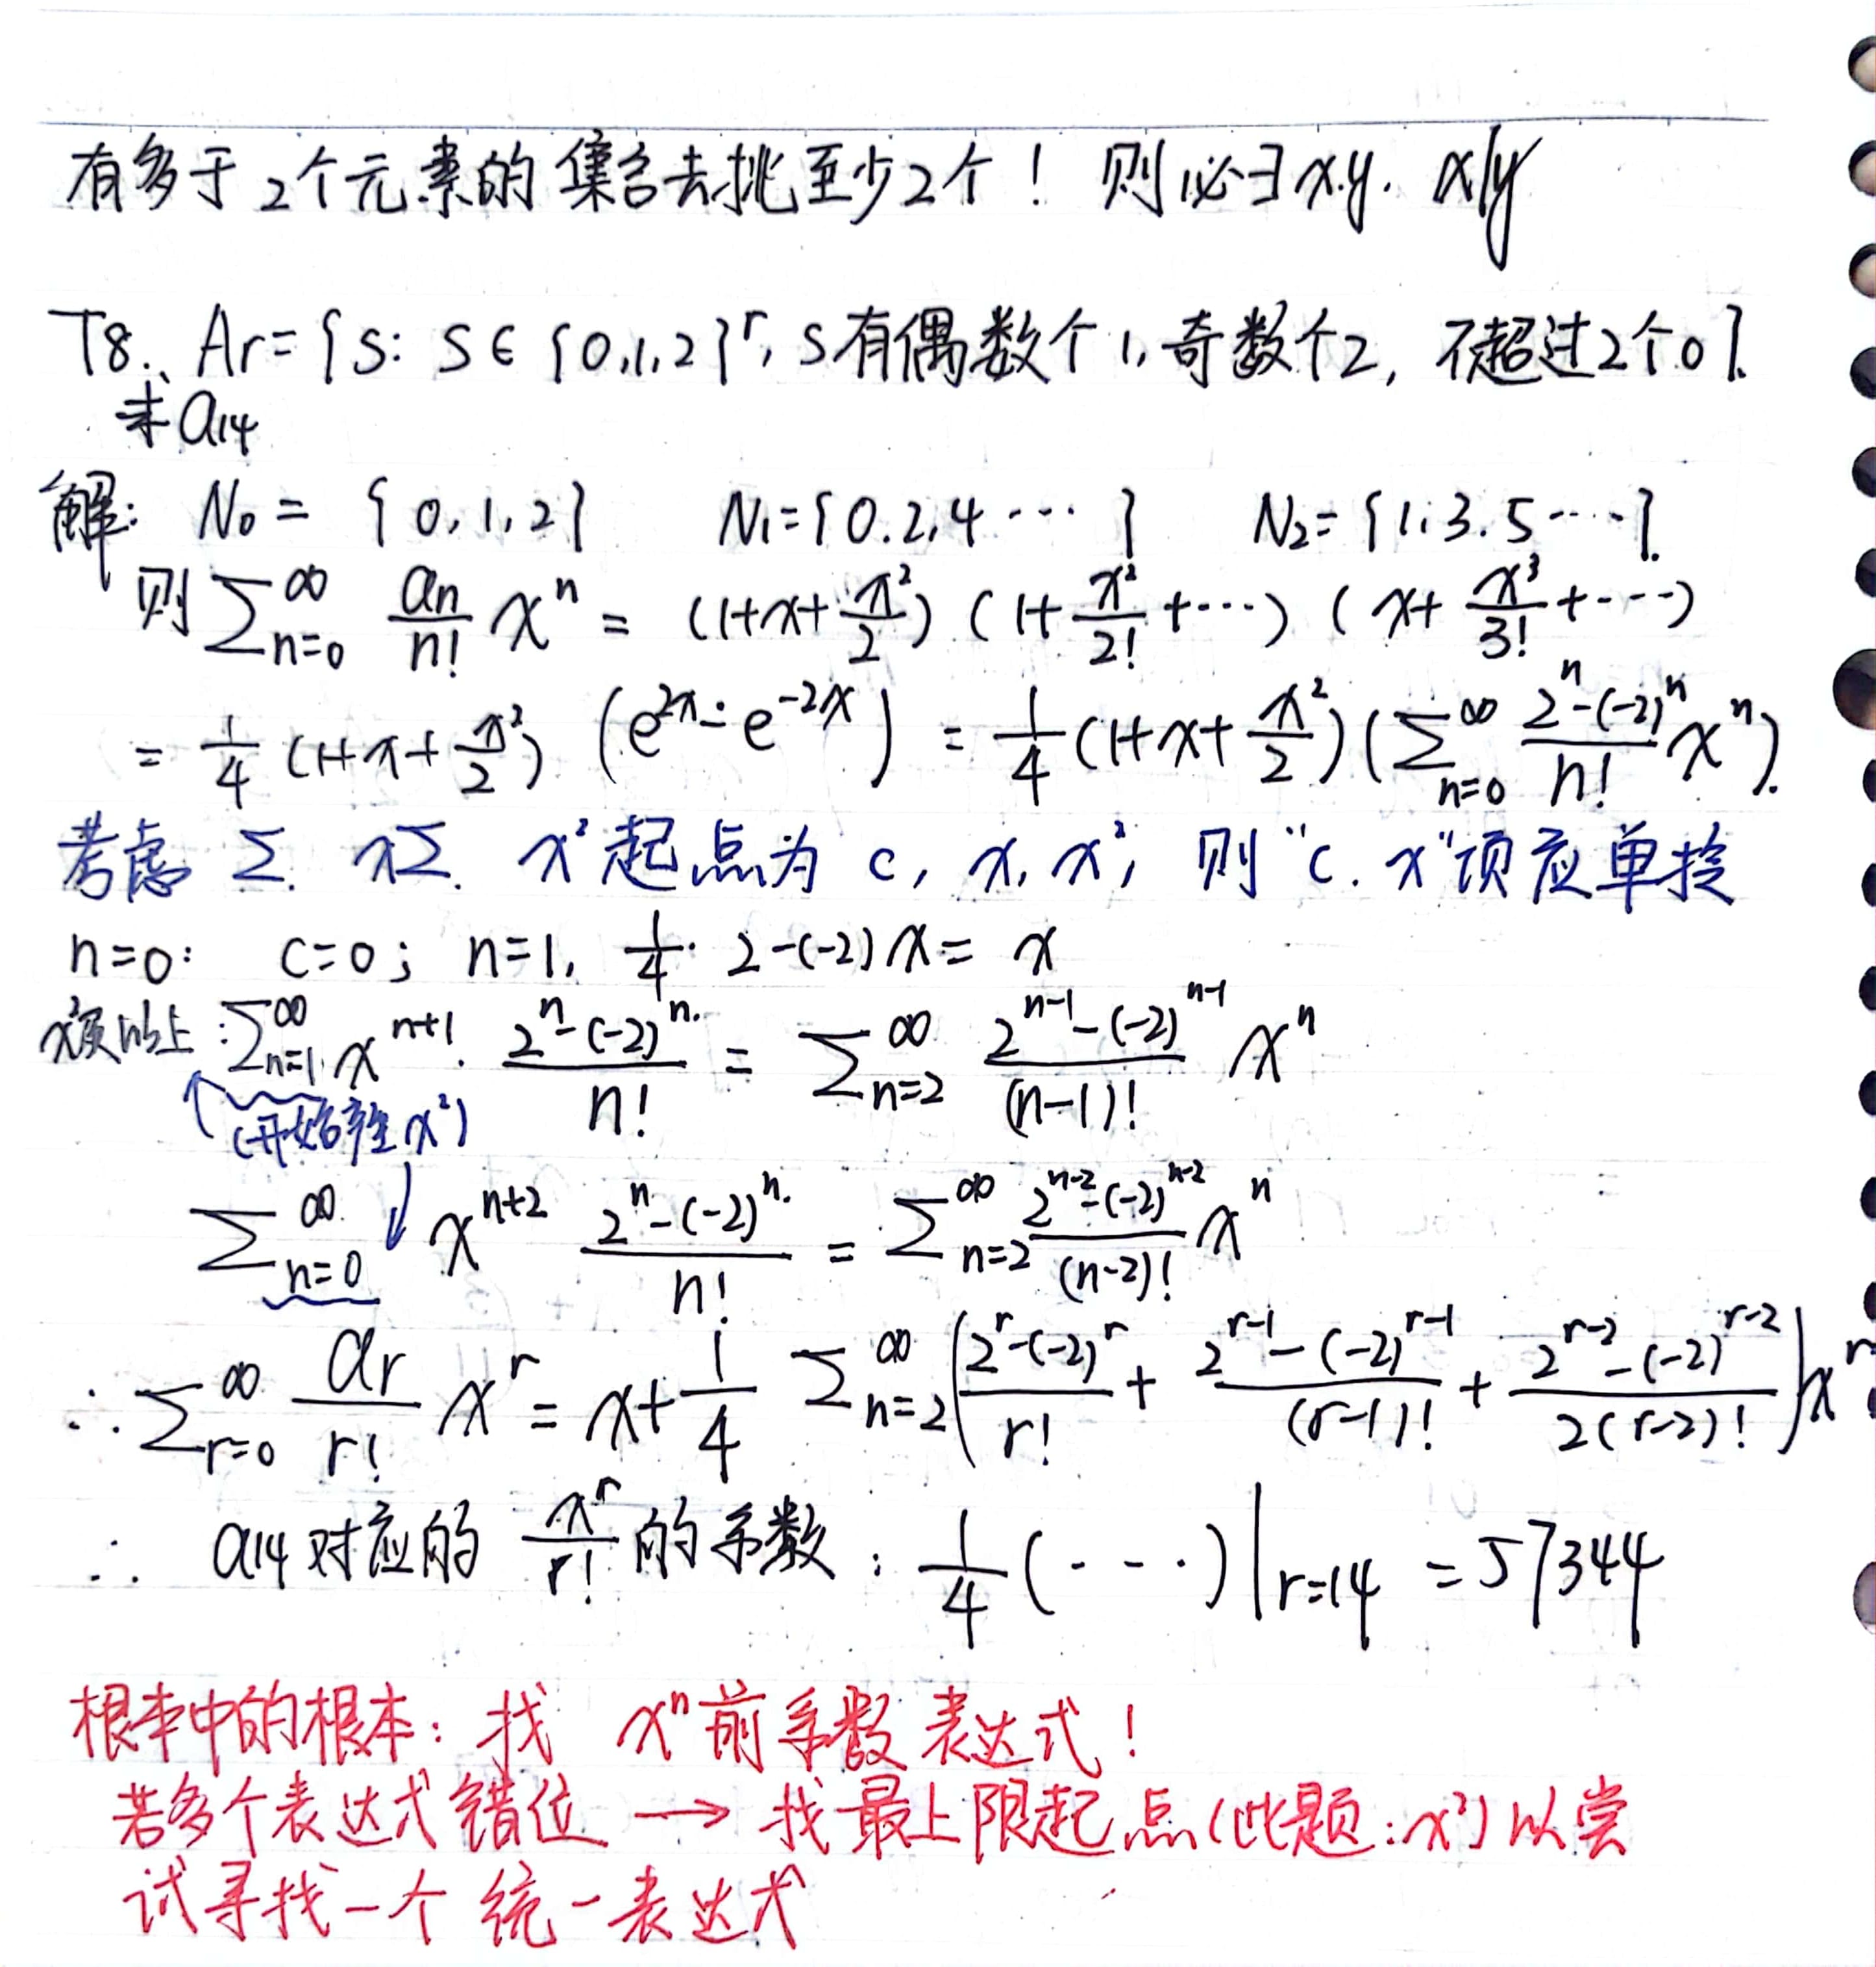 有多于2个元素的集合去挑至少2个！则必∃x.y. x|y
T8. Ar={S: S∈{0,1,2}^r, S有偶数个1,奇数个2, 不超过2个0}.
求a14
解: N0 = {0,1,2} N1={0.2,4⋯} N2={1,3.5⋯}.
则 ∑_{n=0}^∞ a_n/n! x^n = (1+x+x²/2)(1+x²/2!+⋯)(x+x³/3!+⋯)
= 1/4 (1+x+x²/2)(e^{2x}-e^{-2x}) = 1/4 (1+x+x²/2)(∑_{n=0}^∞ (2^n-(-2)^n)/n! x^n).
考虑 ∑. x∑. x²起点为 c, x, x², 则“c. x”项应单拎
n=0: c=0; n=1, 1/4· 2-(-2)x = x
x²项以上: ∑_{n=1}^∞ x^{n+1}· (2^n-(-2)^n)/n! = ∑_{n=2}^∞ (2^{n-1}-(-2)^{n-1})/(n-1)! x^n
(开始产生x²)
∑_{n=0}^∞ x^{n+2} (2^n-(-2)^n)/n! = ∑_{n=2}^∞ (2^{n-2}-(-2)^{n-2})/(n-2)! x^n
∴ ∑_{r=0}^∞ a_r/r! x^r = x + 1/4 ∑_{n=2}^∞ ((2^r-(-2)^r)/r! + (2^{r-1}-(-2)^{r-1})/(r-1)! + (2^{r-2}-(-2)^{r-2})/2(r-2)!) x^r
∴ a14对应的 x^r/r! 的系数: 1/4(⋯)|_{r=14} = 57344
根本中的根本: 找 x^n前系数表达式!
若多个表达式错位 → 找最上限起点(此题:x²)以尝
试寻找一个统一表达式